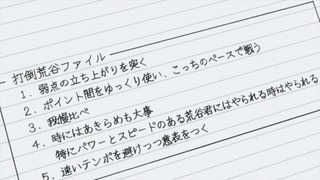 打倒荒谷ファイル
1. 弱点の立ち上がりを突く
2. ポイント間をゆっくり使い、こっちのペースで戦う
3. 我慢比べ
4. 時にはあきらめも大事
特にパワーとスピードのある荒谷君にはやられる時はやられる
5. 速いテンポを避けっつ意表をつく